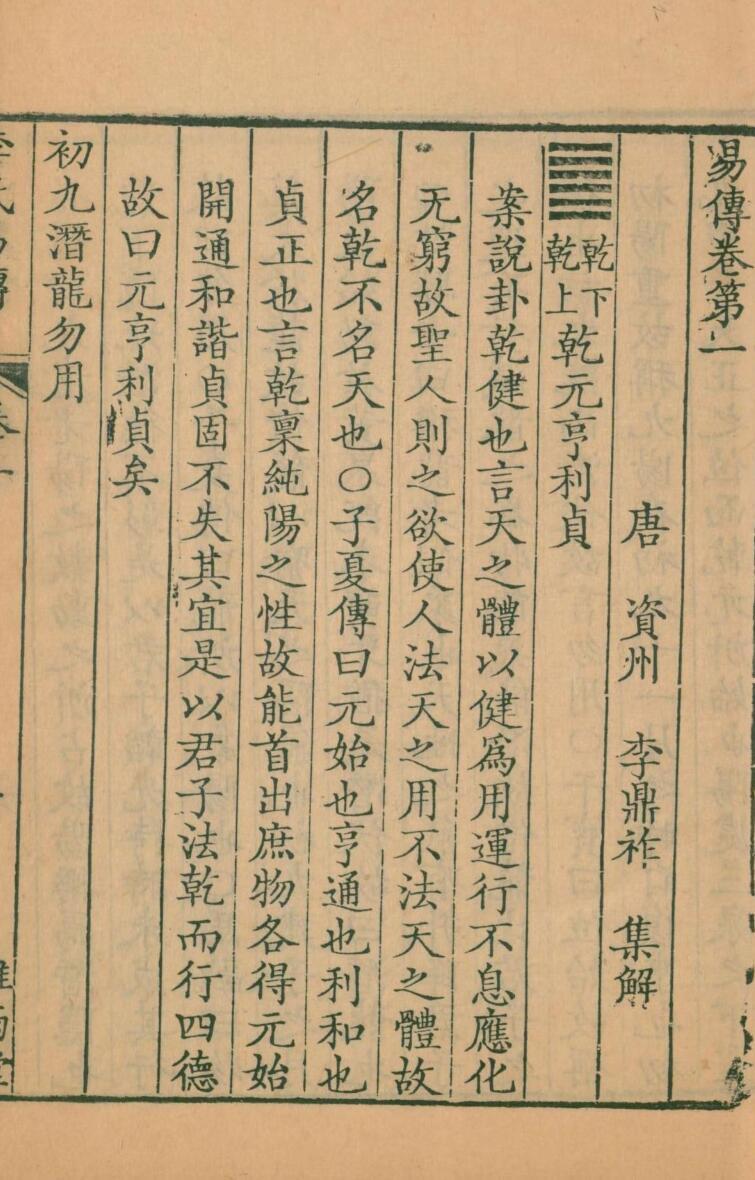 易傳卷第一
唐 資州 李鼎祚 集解
䷀乾下乾上乾元亨利貞
案說卦乾健也言天之體以健爲用運行不息應化
无窮故聖人則之欲使人法天之用不法天之體故
名乾不名天也○子夏傳曰元始也亨通也利和也
貞正也言乾稟純陽之性故能首出庶物各得元始
開通和諧貞固不失其宜是以君子法乾而行四德
故曰元亨利貞矣
初九潛龍勿用